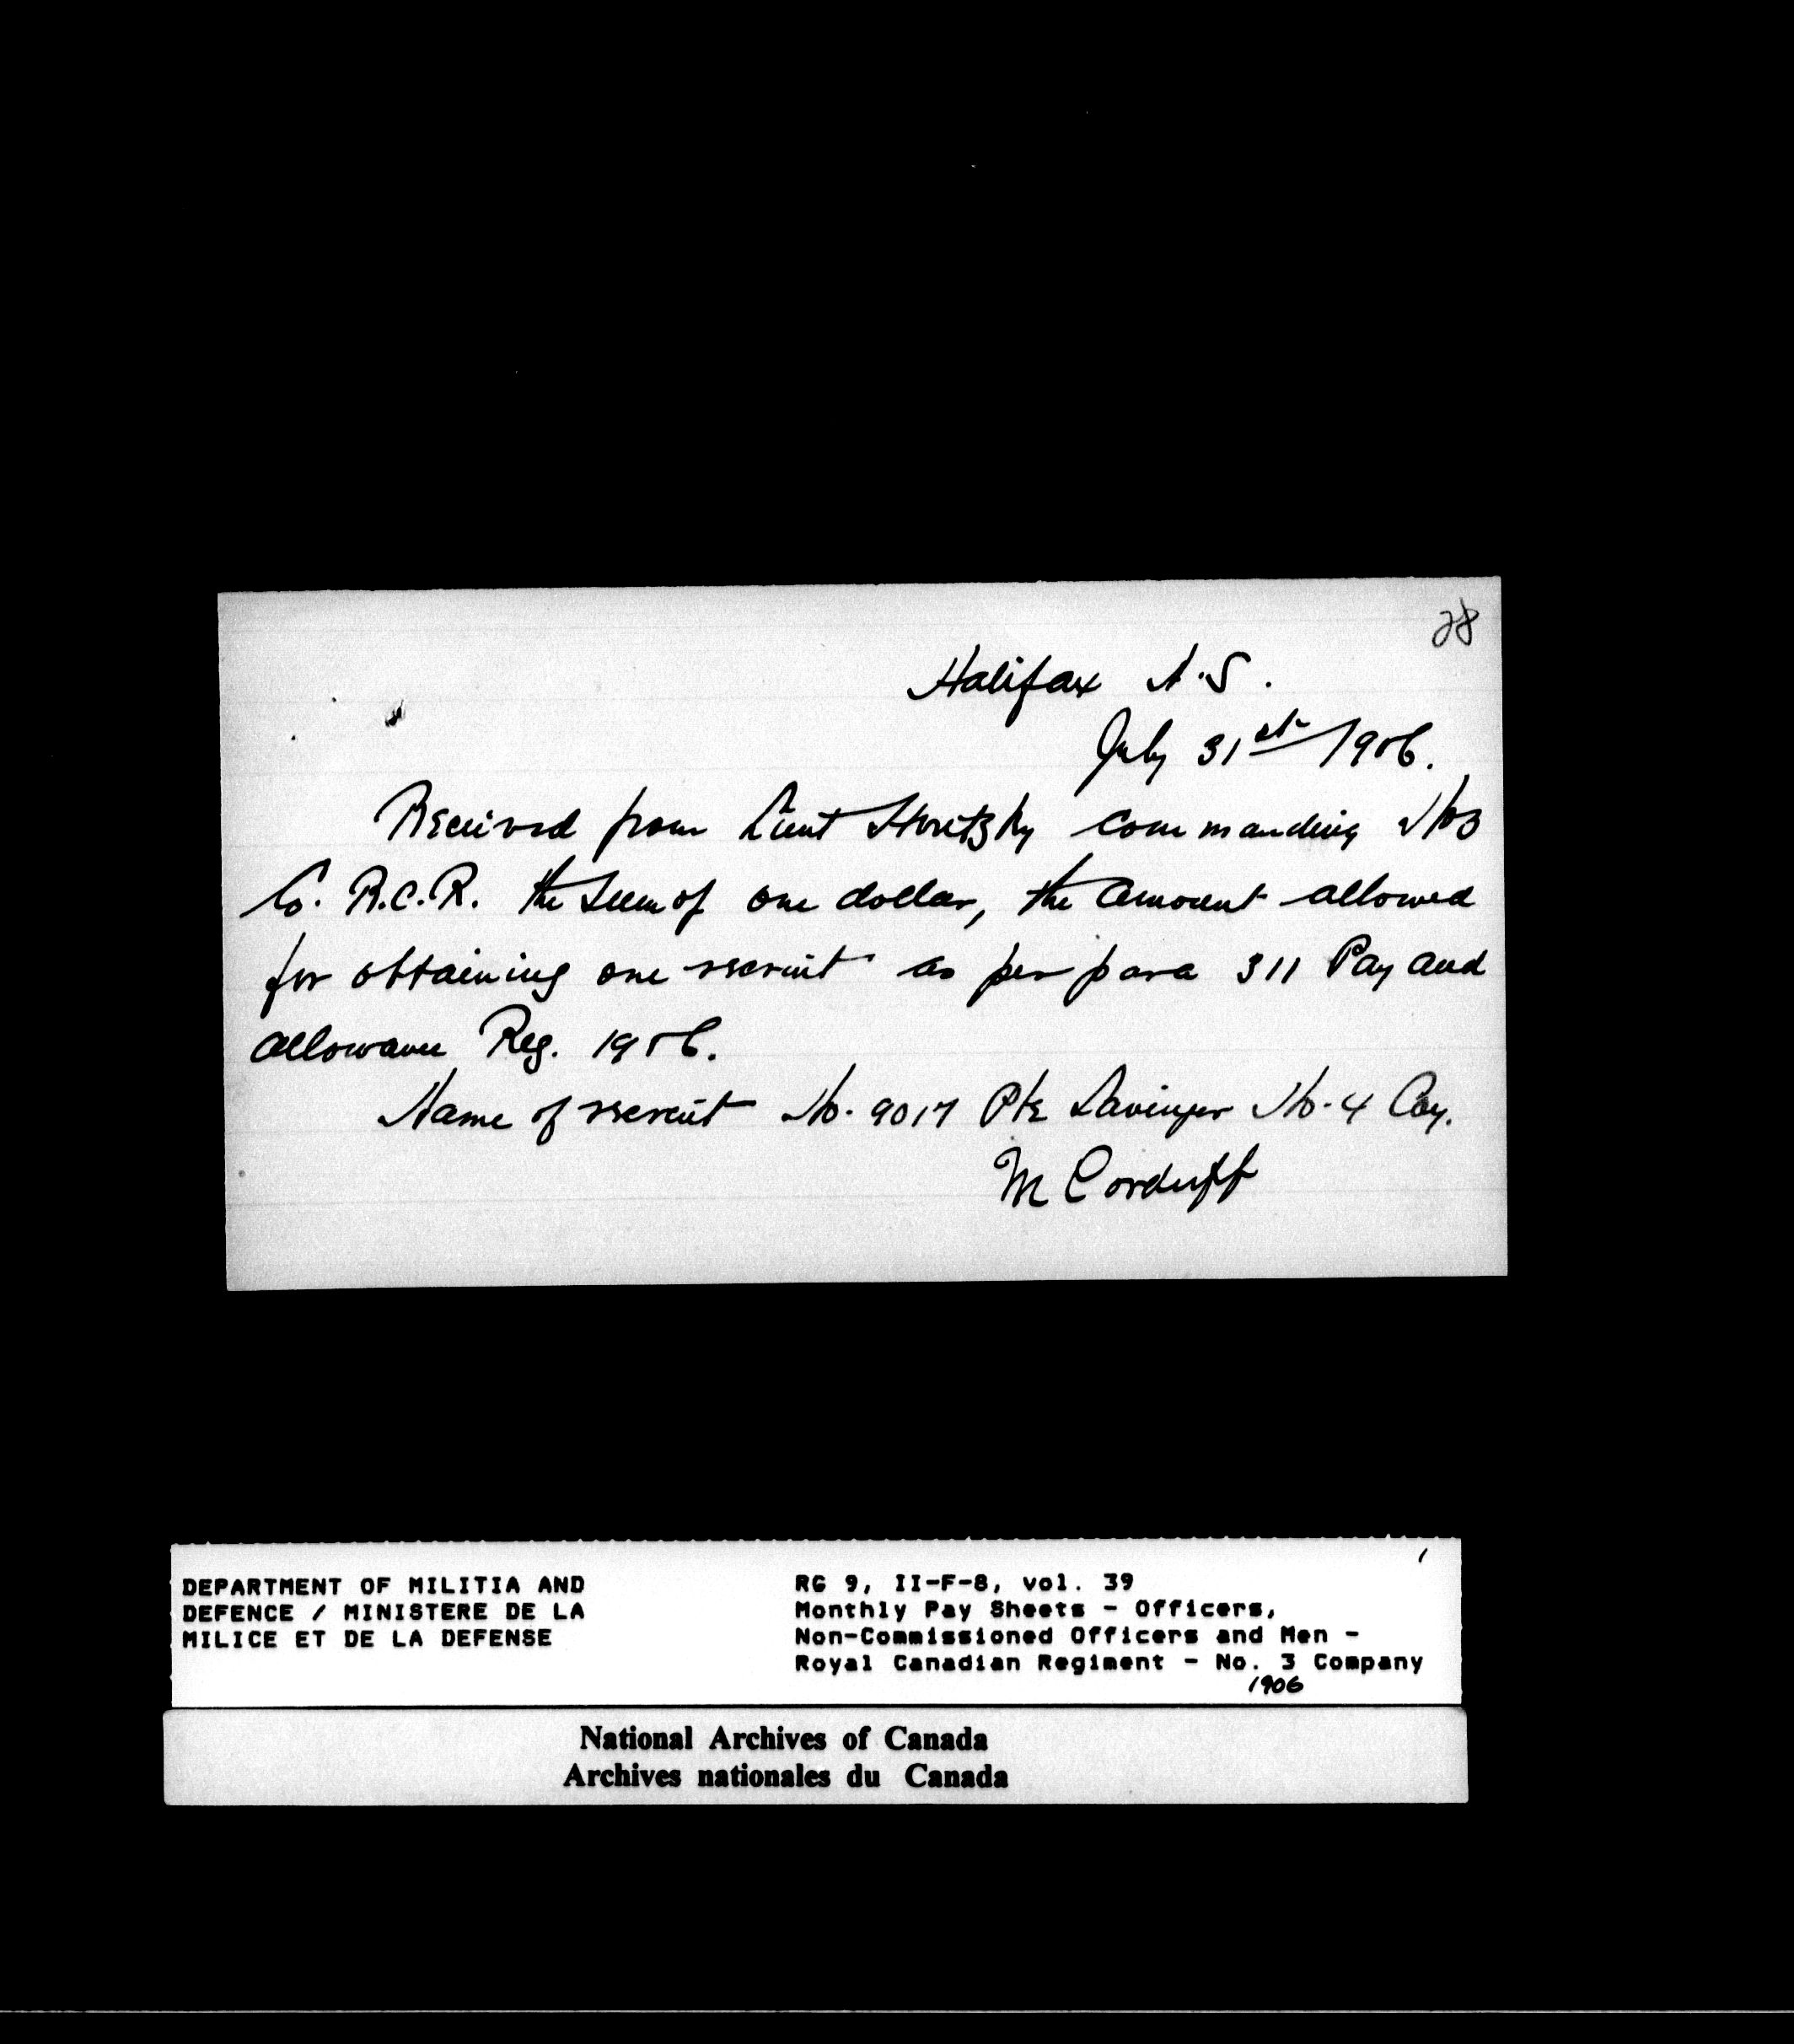 28
Halifax N.S.
July 31st 1906.
Received from Lieut Horetzky commanding No3
Co. R.C.R. the sum of one dollar, the amount allowed
for obtaining one recruit as per para 311 Pay and
allowance Reg. 1906.
Name of recruit No. 9017 Pte No. 4 Coy.
M Corduff
DEPARTMENT OF MILITIA AND
DEFENCE / MINISTERE DE LA
MILICE ET DE LA DEFENSE
RG 9, II-F-8, vol. 39
Monthly Pay Sheets - Officers,
Non-Commissioned Officers and Men -
Royal Canadian Regiment - No. 3 Company
1906
National Archives of Canada
Archives nationales du Canada